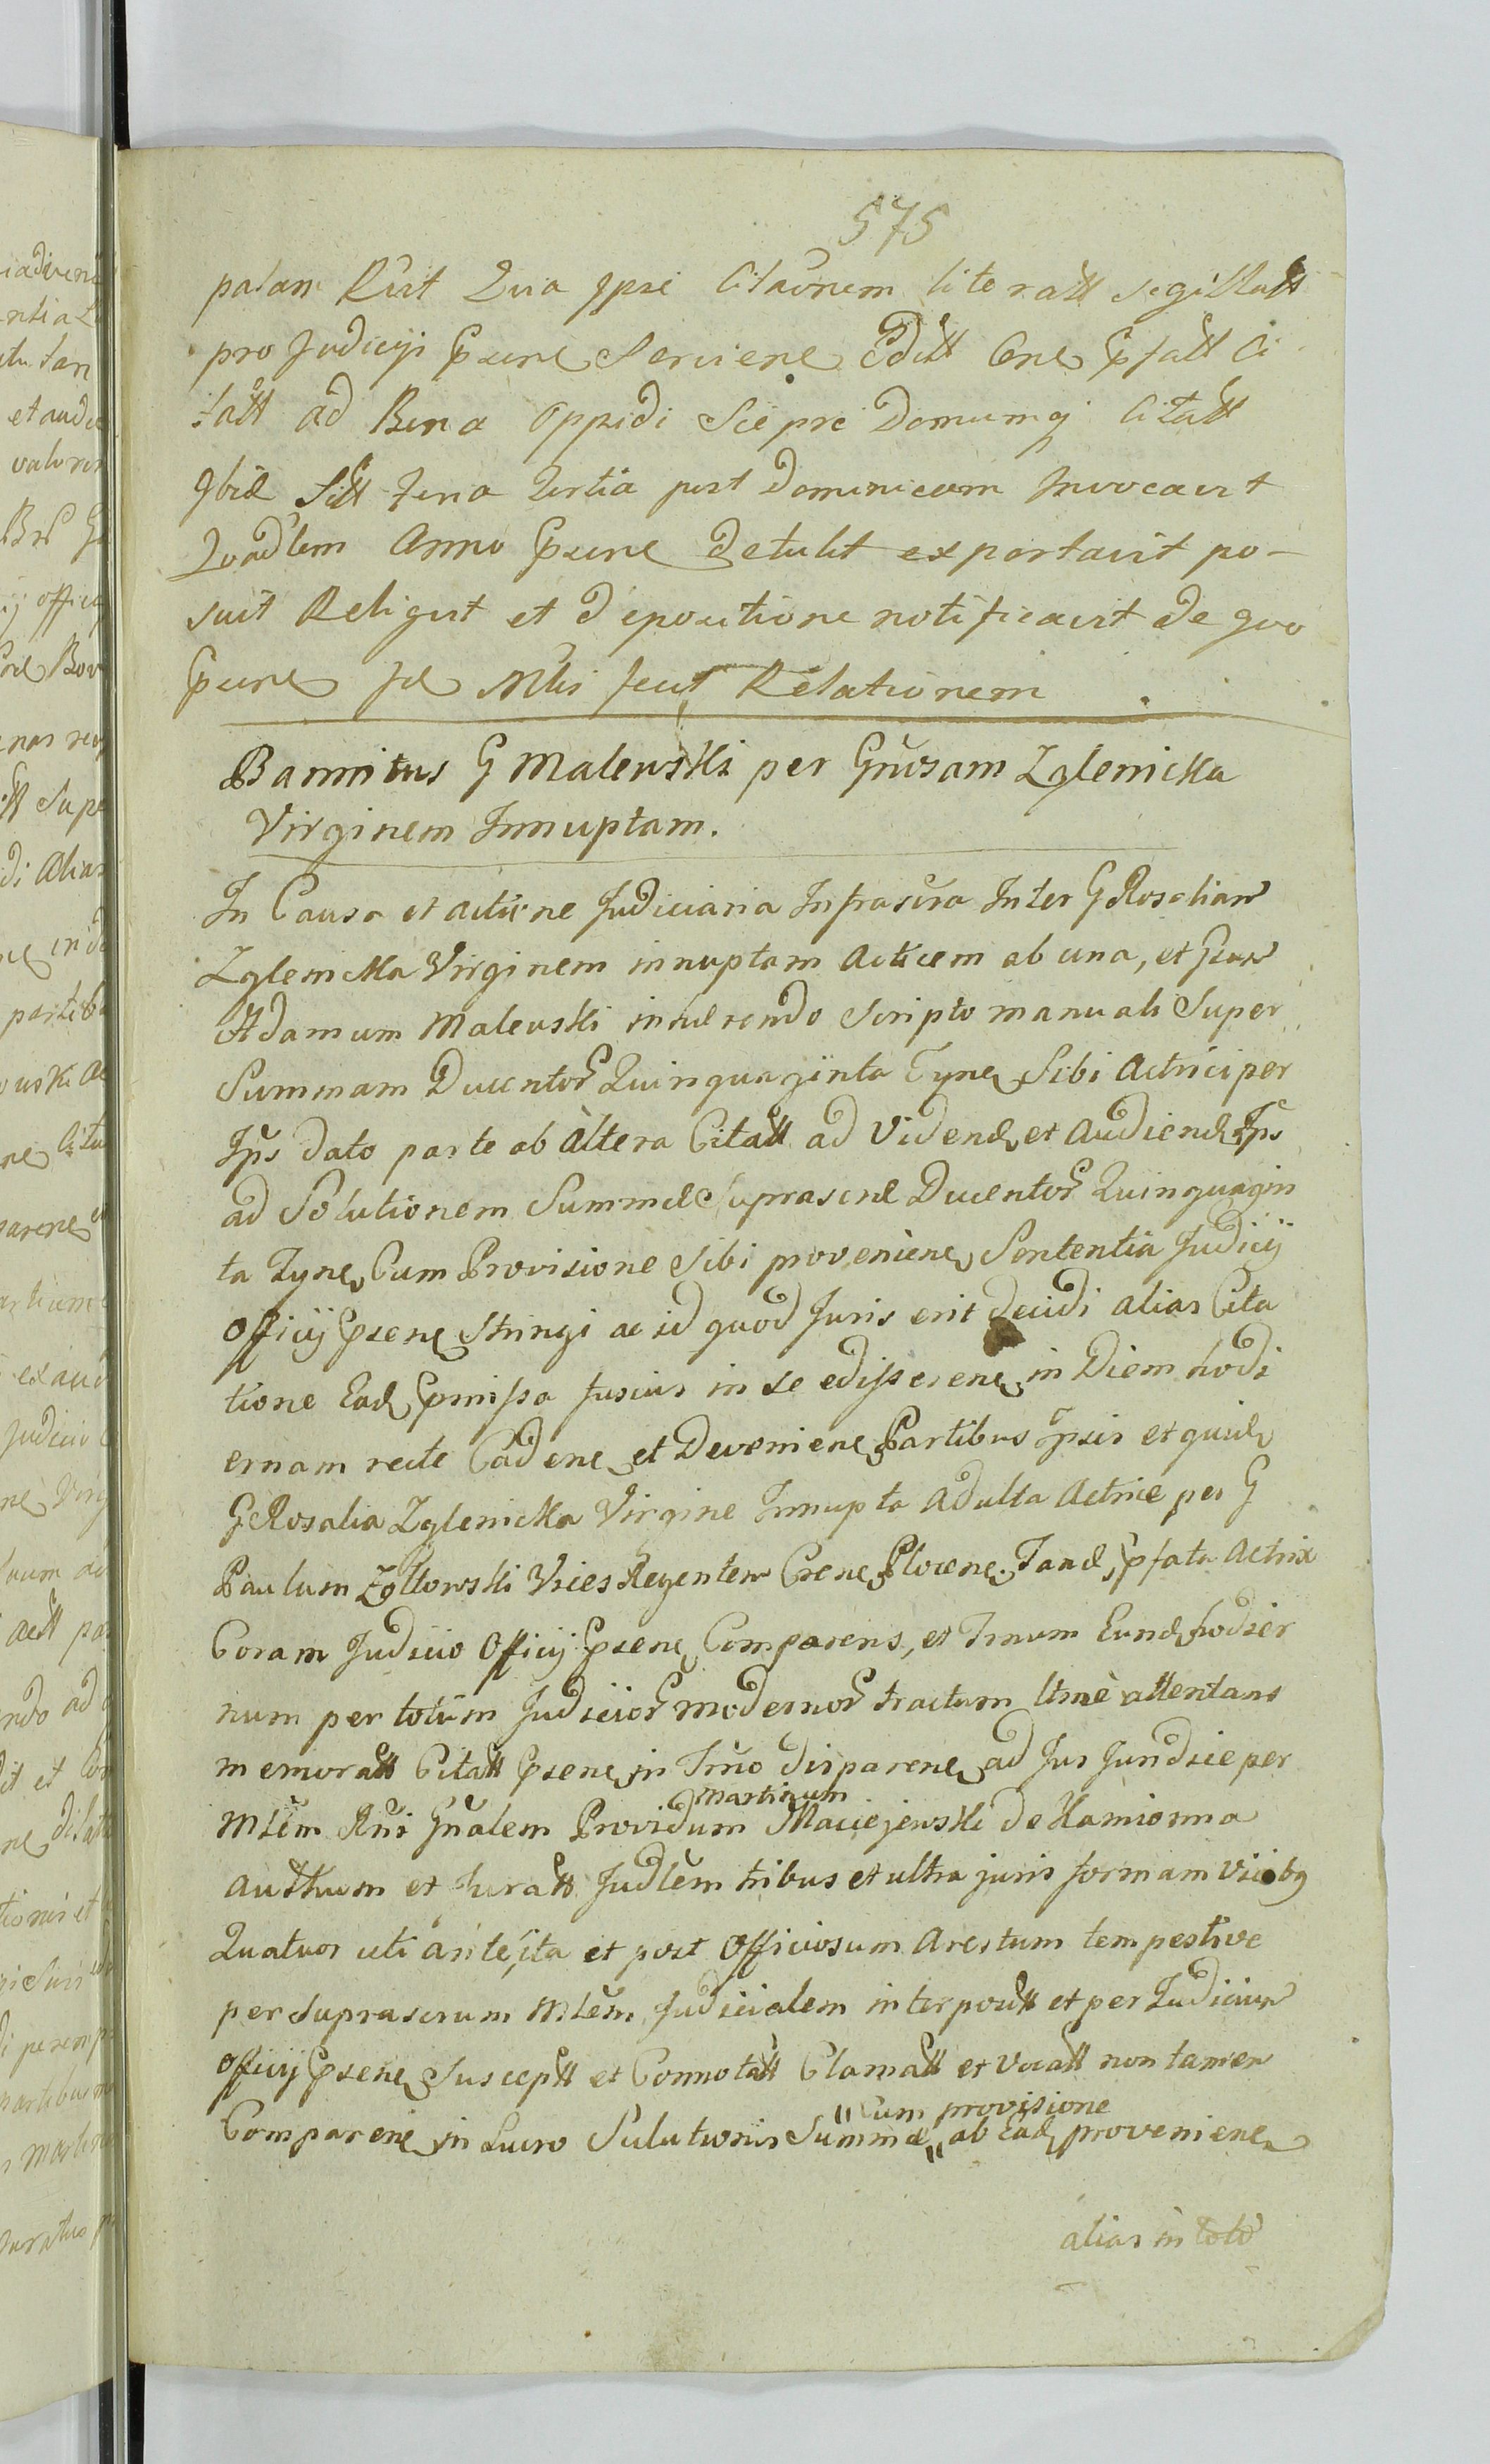 575
palam Rūit Quia Ipse Citaōnem literatt sigillatt
pro Judicÿs Psene Serviene Editt Cone Pfatt Ci
tatt ad Bona Oppidi Sieprc Domumq Citatt
Ibid Sitt Feria Tertia post Dominicam Invocavit
Quad'lem Anno Psene Detulit exportavit po-
suit Reliquit et Depositione notificavit de quo
Psene Jd Mltis fecit Relationem
Bannitus G Malewski per Gn̄osam Zglenicka
Virginem Innuptam.
In Causa et actione Judiciaria Infrascra Inter G Rosaliam
Zglenicka Virginem innuptam Acticem ab una, et Gsum
Adamum Malewski inhærendo Scripto manuali Super
Summam Ducentor Quinquaginta Tyne Sibi Actrici per
Ips dato parte ab altera Citatt ad Vidend et Audiend Ips
ad Solutionem Summæ Suprascnæ Ducentor Quinquagin
ta Tyne Cum Provisione Sibi proveniene Sententia Judicÿ
Officÿ Psene Stringi ac id quod Juris erit Decidi alias Cita
tione Ead Pmissa fusius in se edisserene in Diem hodi
ernam recte Cadene et Deveniene Partibus Ipsis et quid
G Rosalia Zglenicka Virgine Innupta Adulta Actrice per G
Paulum Zołtowski Vices Regentem Csene Plocene. Tand Pfata Actrix
Coram Judicio Officÿ Psene Comparens, et Trnum Eund hodier
num per totum Judicior modernor tractum ltmè attentans
memoratt Citatt Psene in Trno disparene ad Jus Jundice per
Martinum
Mlem Rni Gnalem Providum Maciejewski de Kamionna
Autthum et Juratt Judlem tribus et ultra juris formam Vicibq
Quatuor uti ante, ita et post Officiosum Arestum tempestive
per Suprascrum Mlem Judicialem interposit et per Judicium
Officÿ Psene Susceptt et Connotatt Clamatt et Vocatt non tamen
" Cum provisione
Comparene in Lucro Solutionis Summæ " ab Ead proveniene
alias in toto